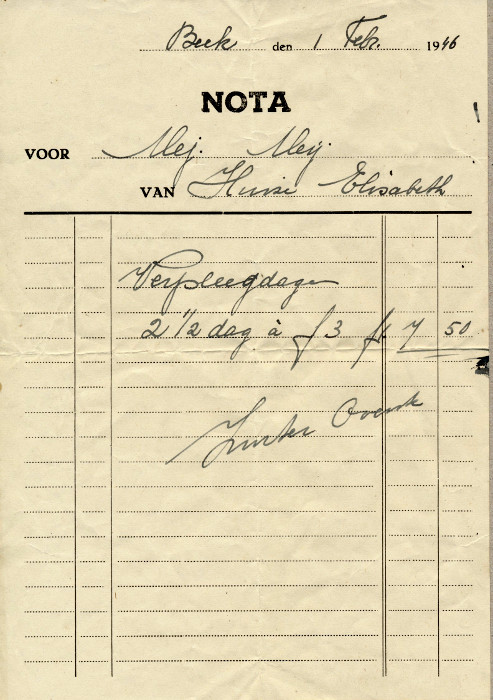 Beek den 1 Febr. 1946
NOTA
VOOR Mej. Meij.
VAN Huize Elisabeth
Verpleegdagen
2 1/2 dag à f 3 fl. 7 50
Zuster